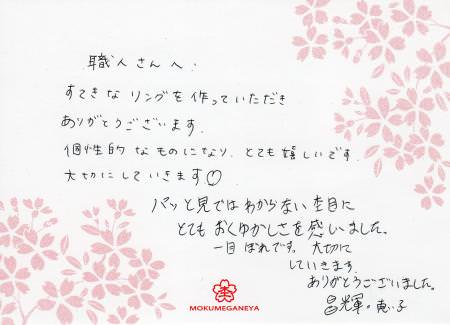 職人さんへ.
すてきなリングを作っていただき
ありがとうございます.
個性的なものになり、とても嬉しいです.
大切にしていきます♡
パッと見ではわからない杢目に
とてもおくゆかしさを感いました。
一目ぼれです。大切に
していきます.
ありがとうございました。
昌輝・恵子
MOKUMEGANEYA